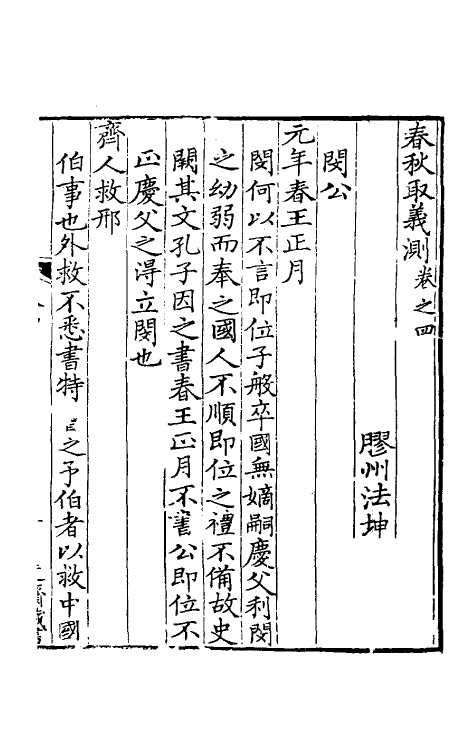 春秋取義測卷之四
膠州法坤
閔公
元年春王正月
閔何以不言即位子般卒國無嫡嗣慶父利閔
之幼弱而奉之國人不順即位之禮不備故史
闕其文孔子因之書春王正月不書公即位不
正慶父之得立閔也
齊人救邢
伯事也外救不悉書特之予伯者以救中國